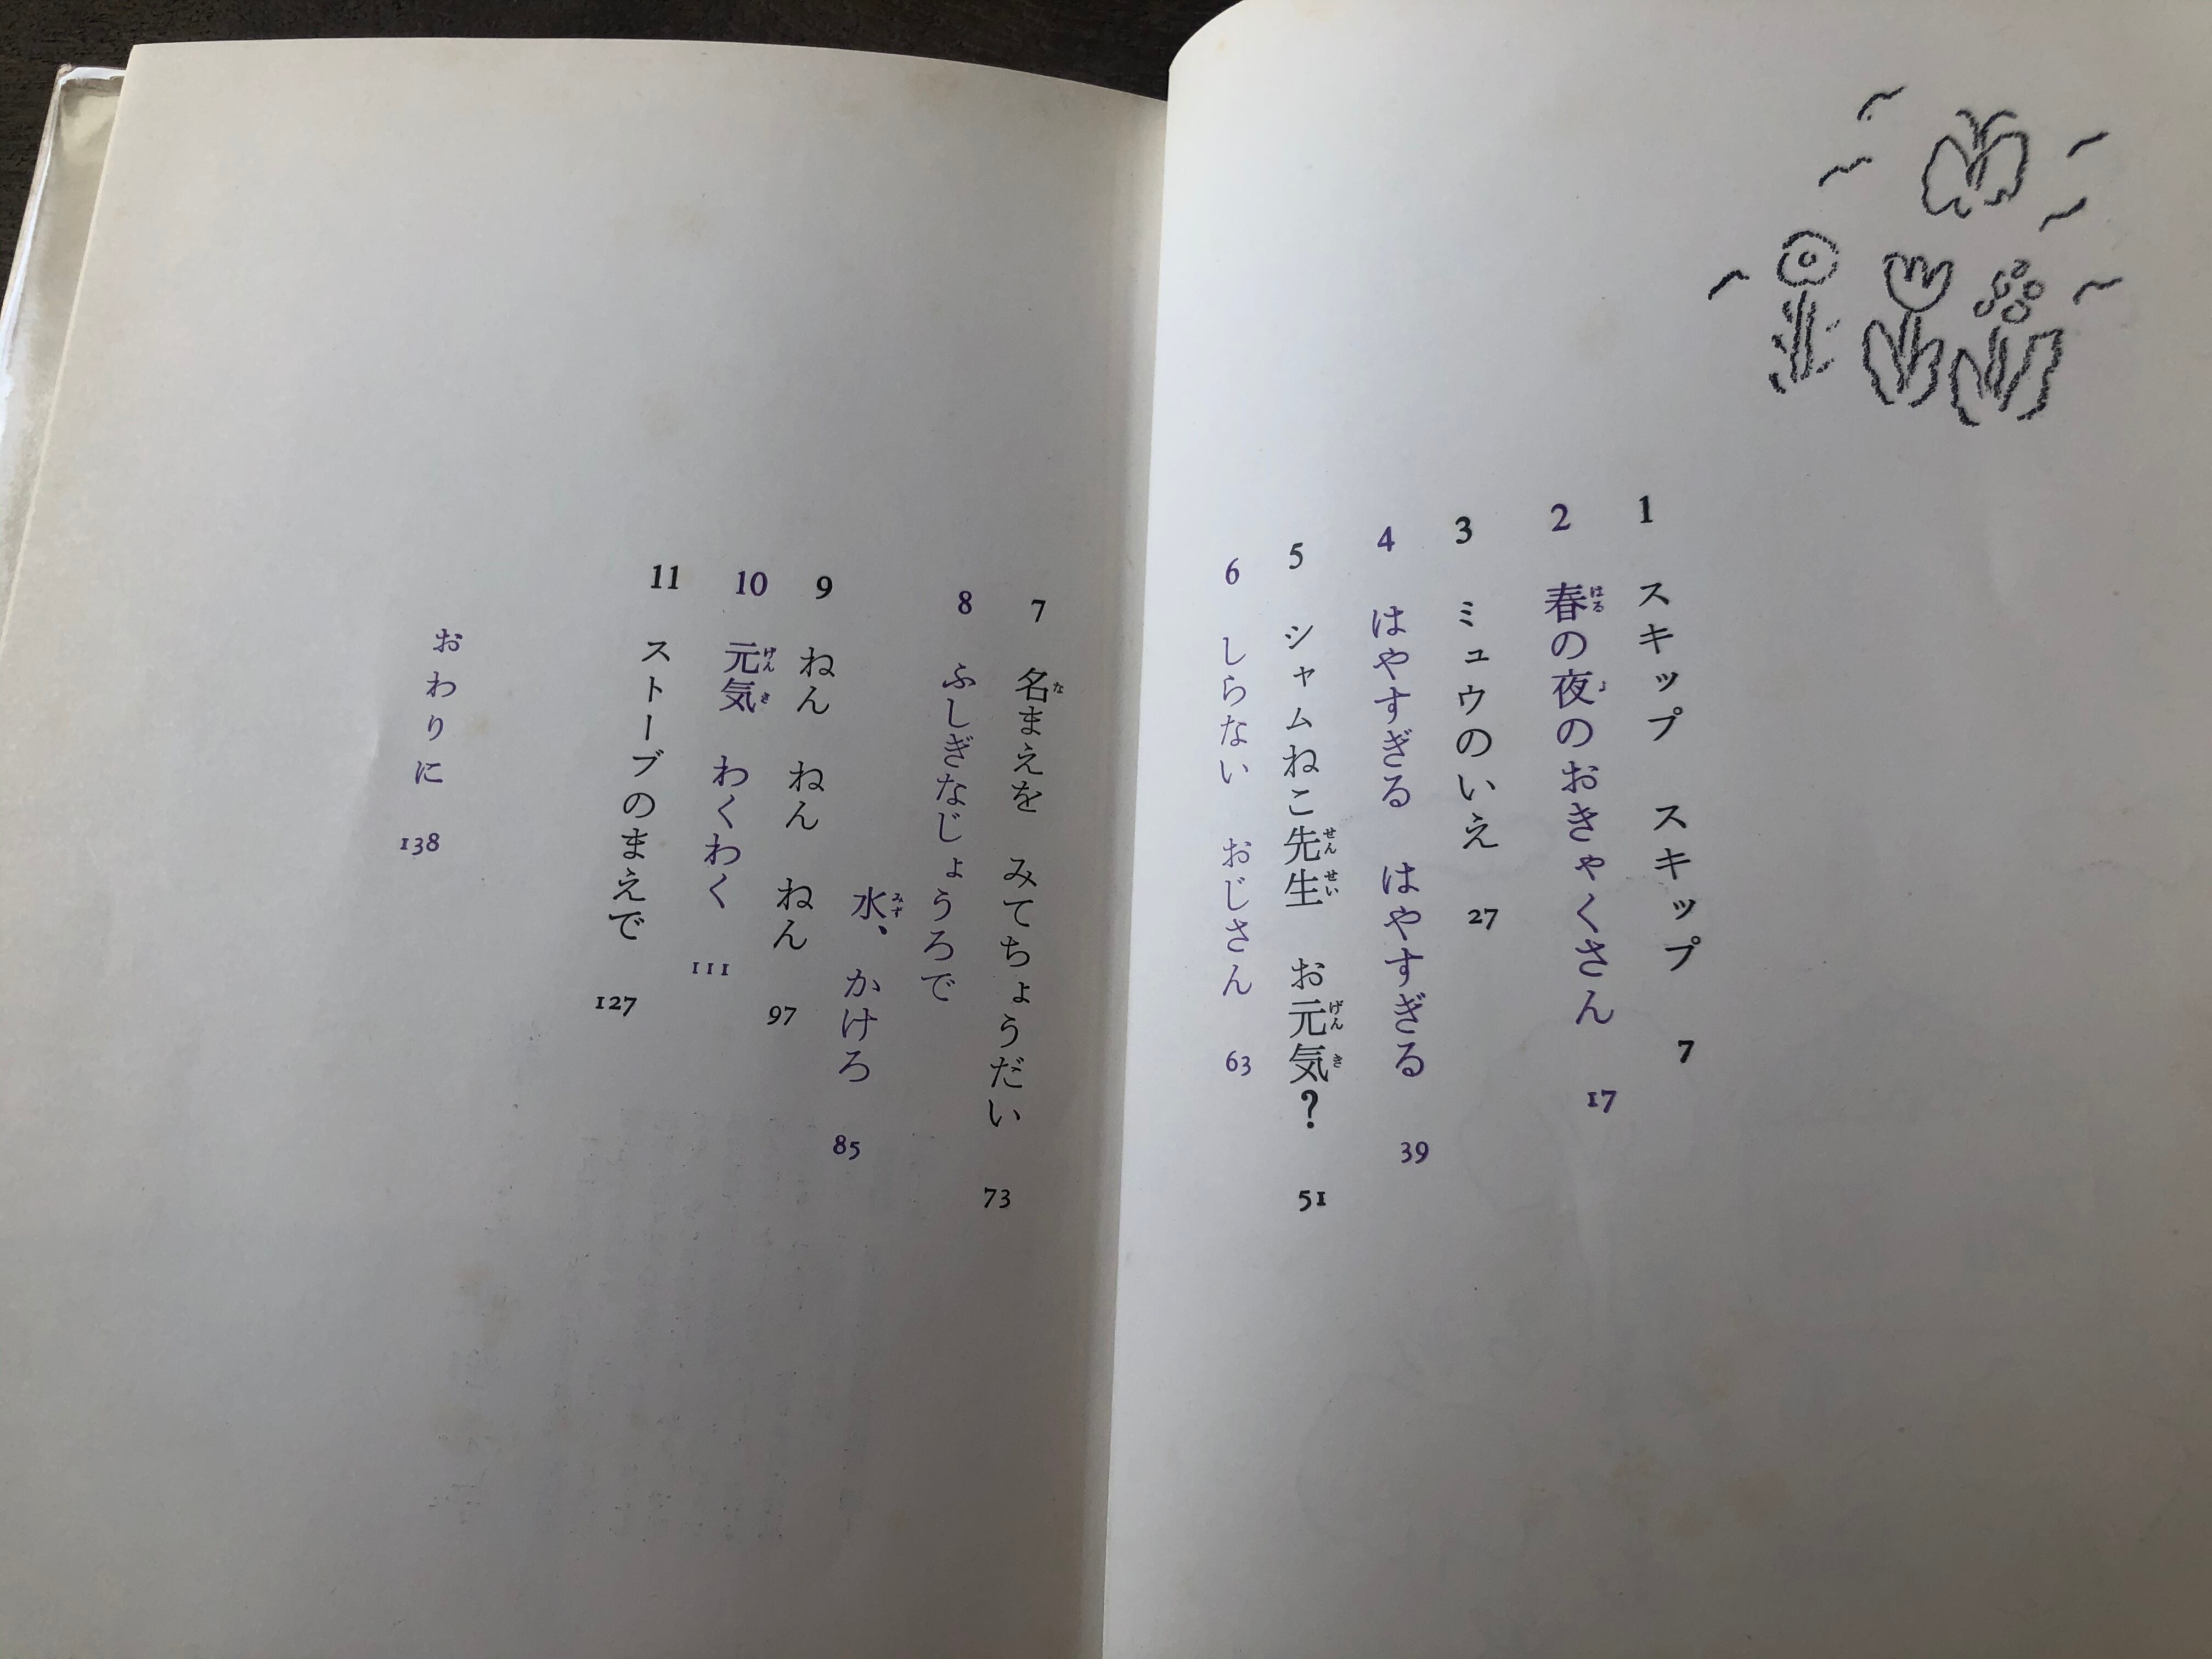 1 スキップ スキップ 7
2 春の夜のおきゃくさん 17
3 ミュウのいえ 27
4 はやすぎる はやすぎる 39
5 シャムねこ先生 お元気? 51
6 しらない おじさん 63
7 名まえを みてちょうだい 73
8 ふしぎなじょうろで
水、かけろ 85
9 ねん ねん ねん 97
10 元気 わくわく 111
11 ストーブのまえで 127
おわりに 138